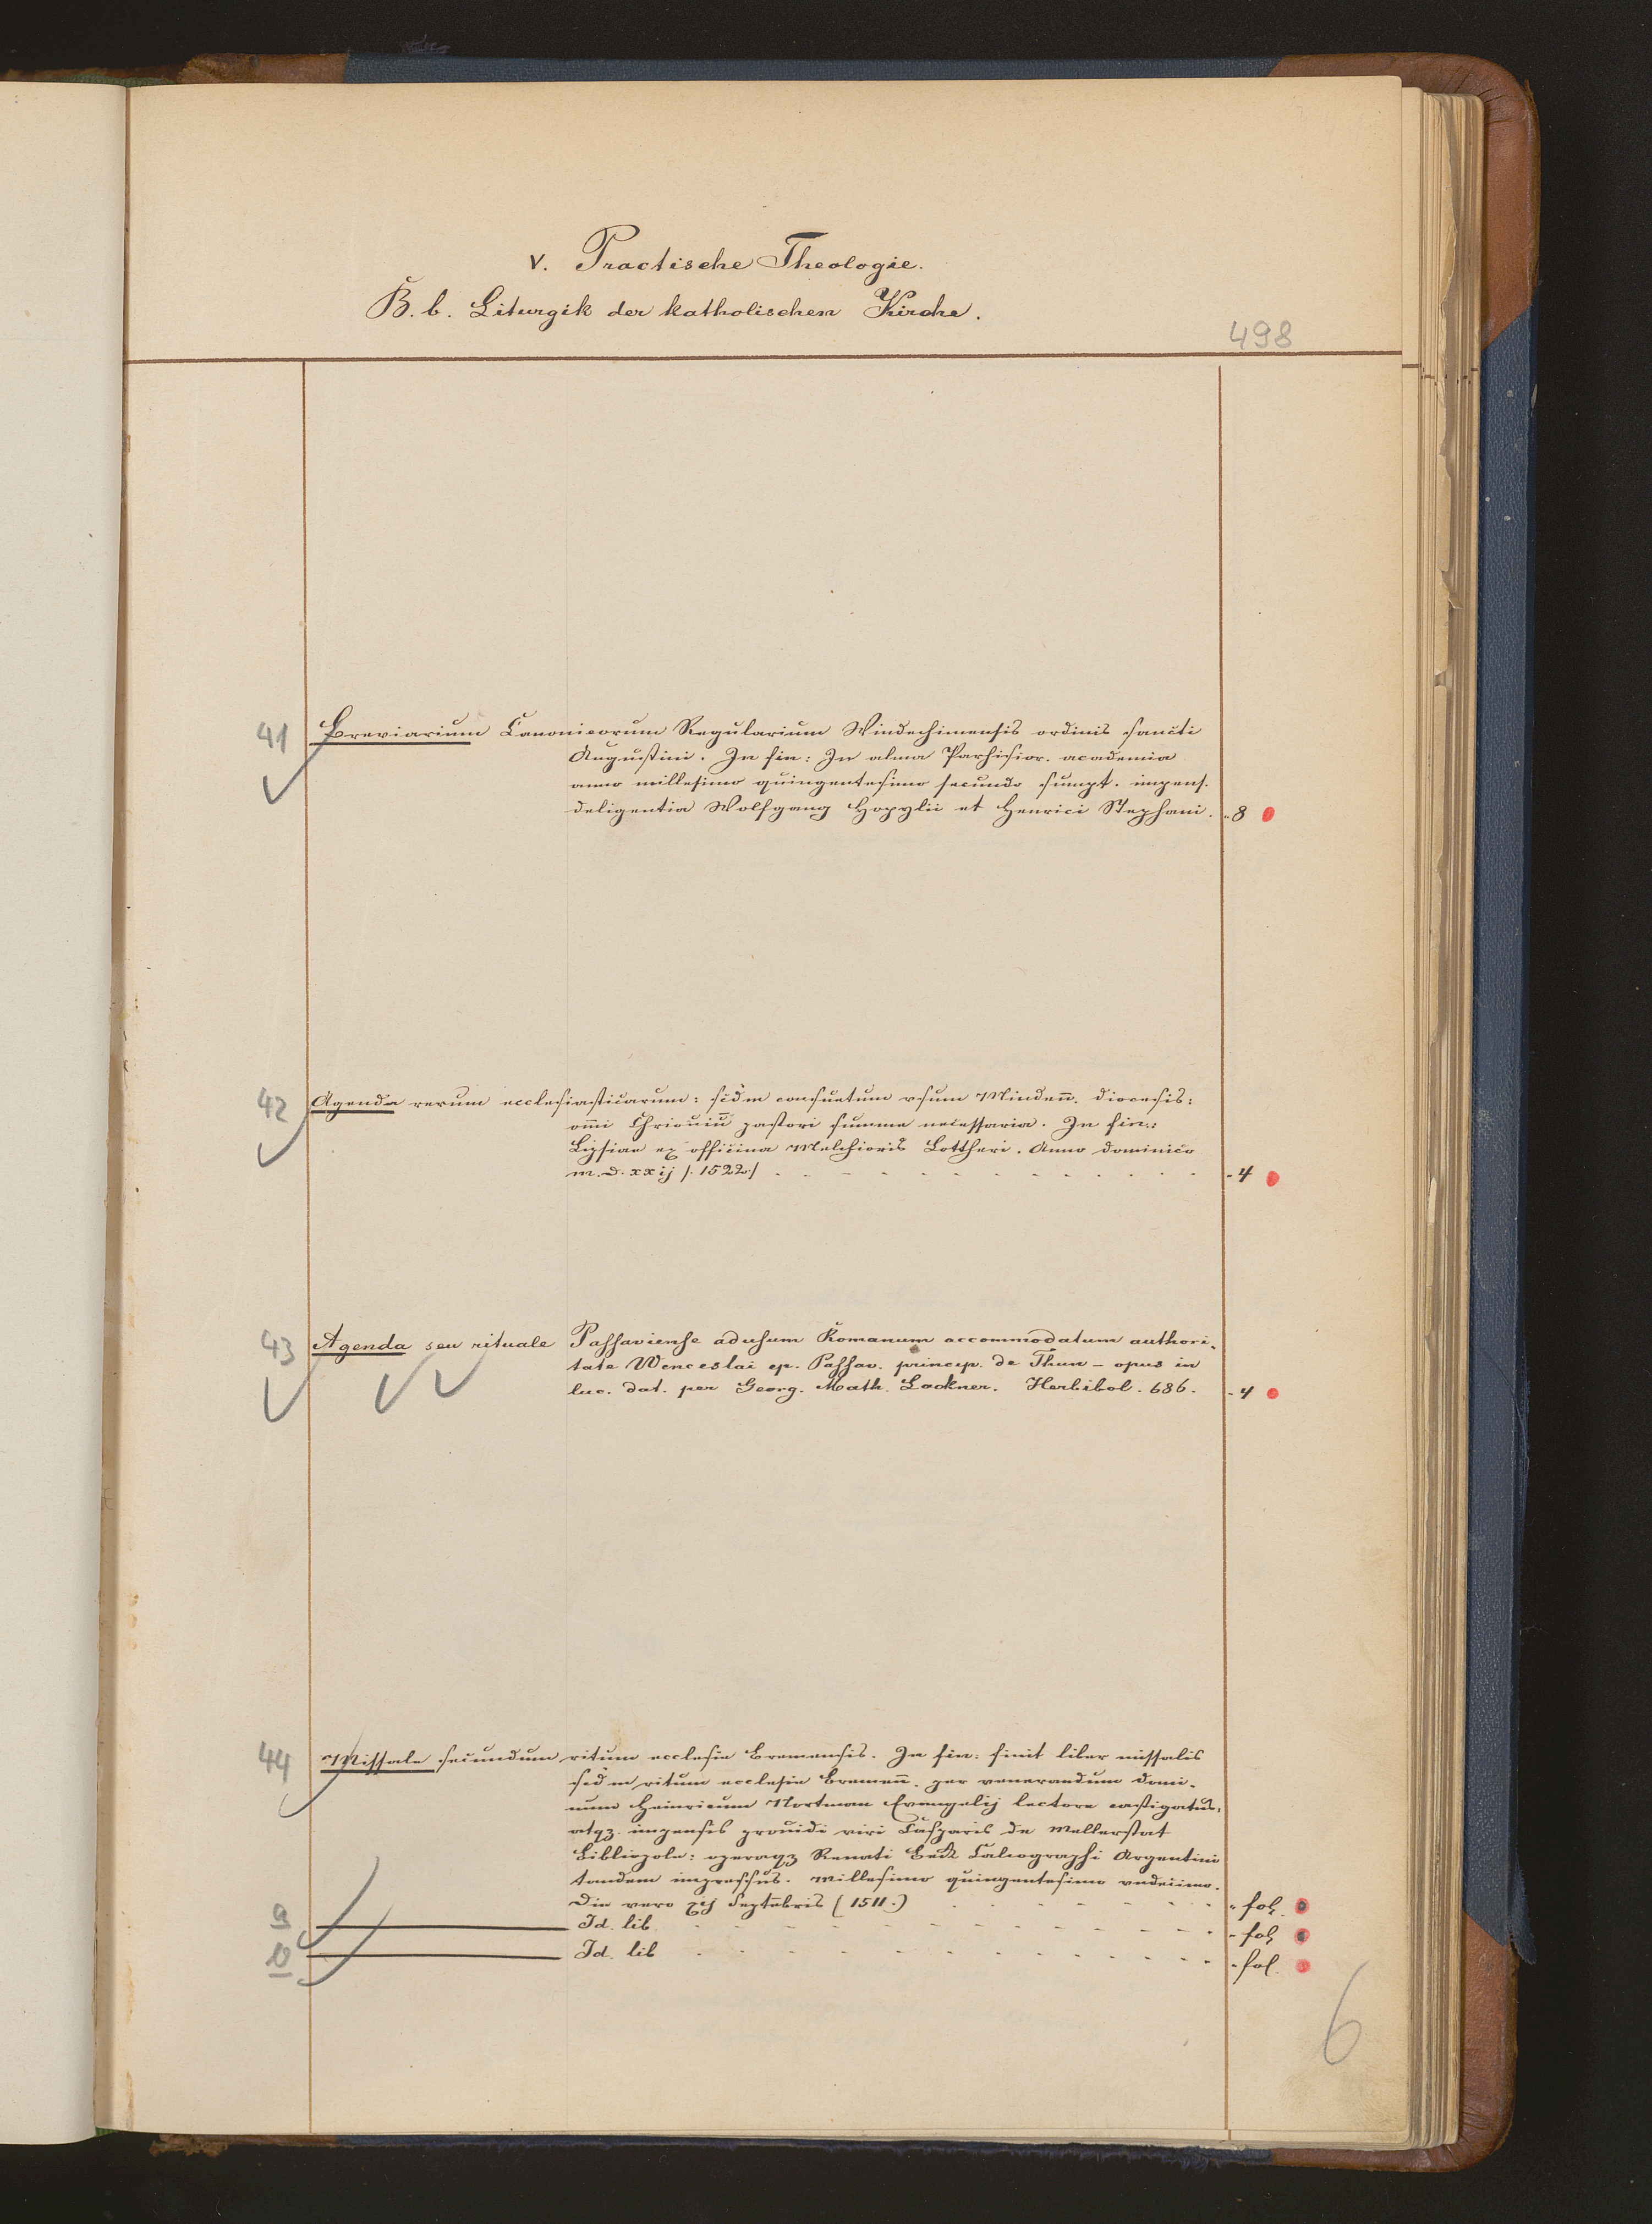 V. Practische Theologie.
B. b. Liturgik der katholischen Kirche.
498
41 Breviarium Canonicorum Regularium Windeshimensis ordinis sancti
Augustini. In fin: In alma Parhisior. academia
anno millesimo quingentesimo secundo sumpt. impens.
deligentia Wolfgang Hopylii et Henrici Stephani. - 8
42 Agenda rerum ecclesiasticarum: scd̄m consuetum vsum Mindeñ. diocesis:
om̄i pastori summe necessaria. In fin.:
Lipsiae ex officina Melchioris Lottheri. Anno dominico
m. d. xxij /: 1522 :/ - 4
43 Agenda seu rituale Passaviense ad usum Romanum accommodatum authori-
tate Wenceslai ep. Passav. princip. de Thun – opus in
luc. dat. per Georg. Math. Lackner. Herbibol. 686. - 4
44 Missale secundum ritum ecclesie Bremensis. In fin: finit liber missalis
scd̄m ritum ecclesie Bremeñ. per venerandum domi-
num Heinricum Nortman Evangelij lectore castigatus,
atqz impensis prouidi viri Casparis de Mellerstat
Bibliopole: operaqz Renati Beck Calcographi Argentini
tandem impressus. Millesimo quingentesimo vndecimo.
Die vero xij Septēbris (1511.) - fol.
a Id. lib. - fol.
b Id. lib - fol.
6